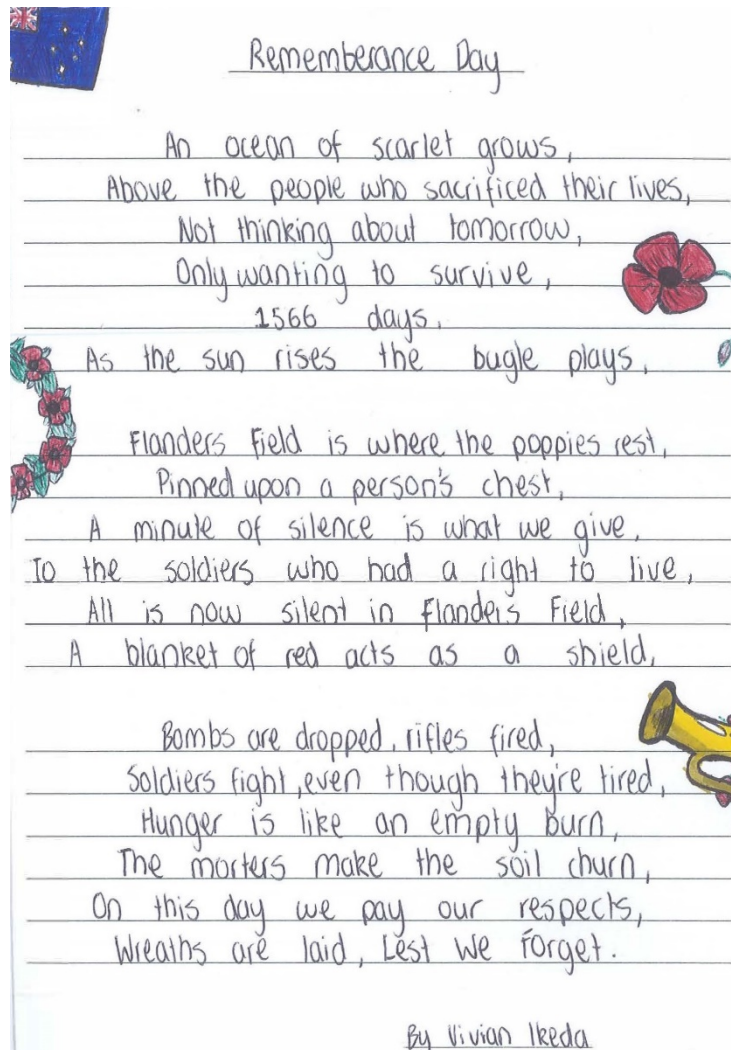 Rememberance Day
An ocean of scarlet grows,
Above the people who sacrificed their lives,
Not thinking about tomorrow,
Only wanting to survive,
1566 days.
As the sun rises the bugle plays.
Flanders Field is where the poppies rest,
Pinned upon a person's chest,
A minute of silence is what we give,
To the soldiers who had a right to live,
All is now silent in Flanders Field,
A blanket of red acts as a shield,
Bombs are dropped, rifles fired,
Soldiers fight, even though they're tired,
Hunger is like an empty burn,
The morters make the soil churn,
On this day we pay our respects,
Wreaths are laid, Lest We Forget.
By Vivian Ikeda